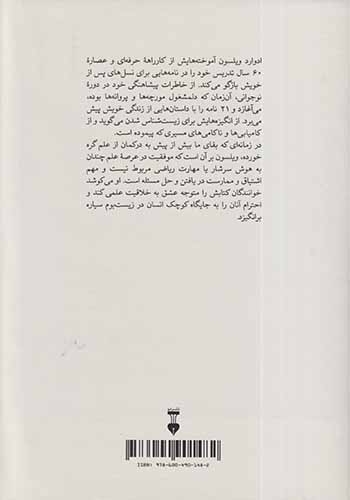 ادوارد ویلسون آموخته‌هایش از کارراههٔ حرفه‌ای و عصارهٔ
۶۰ سال تدریس خود را در نامه‌هایی برای نسل‌های پس از
خویش بازگو می‌کند. از خاطرات پیشاهنگی خود در دورهٔ
نوجوانی، آن‌زمان که دلمشغول مورچه‌ها و پروانه‌ها بوده،
می‌آغازد و ۲۱ نامه را با داستان‌هایی از زندگی خویش پیش
می‌برد. از انگیزه‌هایش برای زیست‌شناس شدن می‌گوید و از
کامیابی‌ها و ناکامی‌های مسیری که پیموده است.
در زمانه‌ای که بقای ما بیش از پیش به درکمان از علم گره
خورده، ویلسون بر آن است که موفقیت در عرصهٔ علم چندان
به هوش سرشار یا مهارت ریاضی مربوط نیست و مهم
اشتیاق و ممارست در یافتن و حل مسئله است. او می‌کوشد
خوانندگان کتابش را متوجه عشق به خلاقیت علمی کند و
احترام آنان را به جایگاه کوچک انسان در زیست‌بوم سیاره
برانگیزد.
ISBN: 978-600-490-148-2